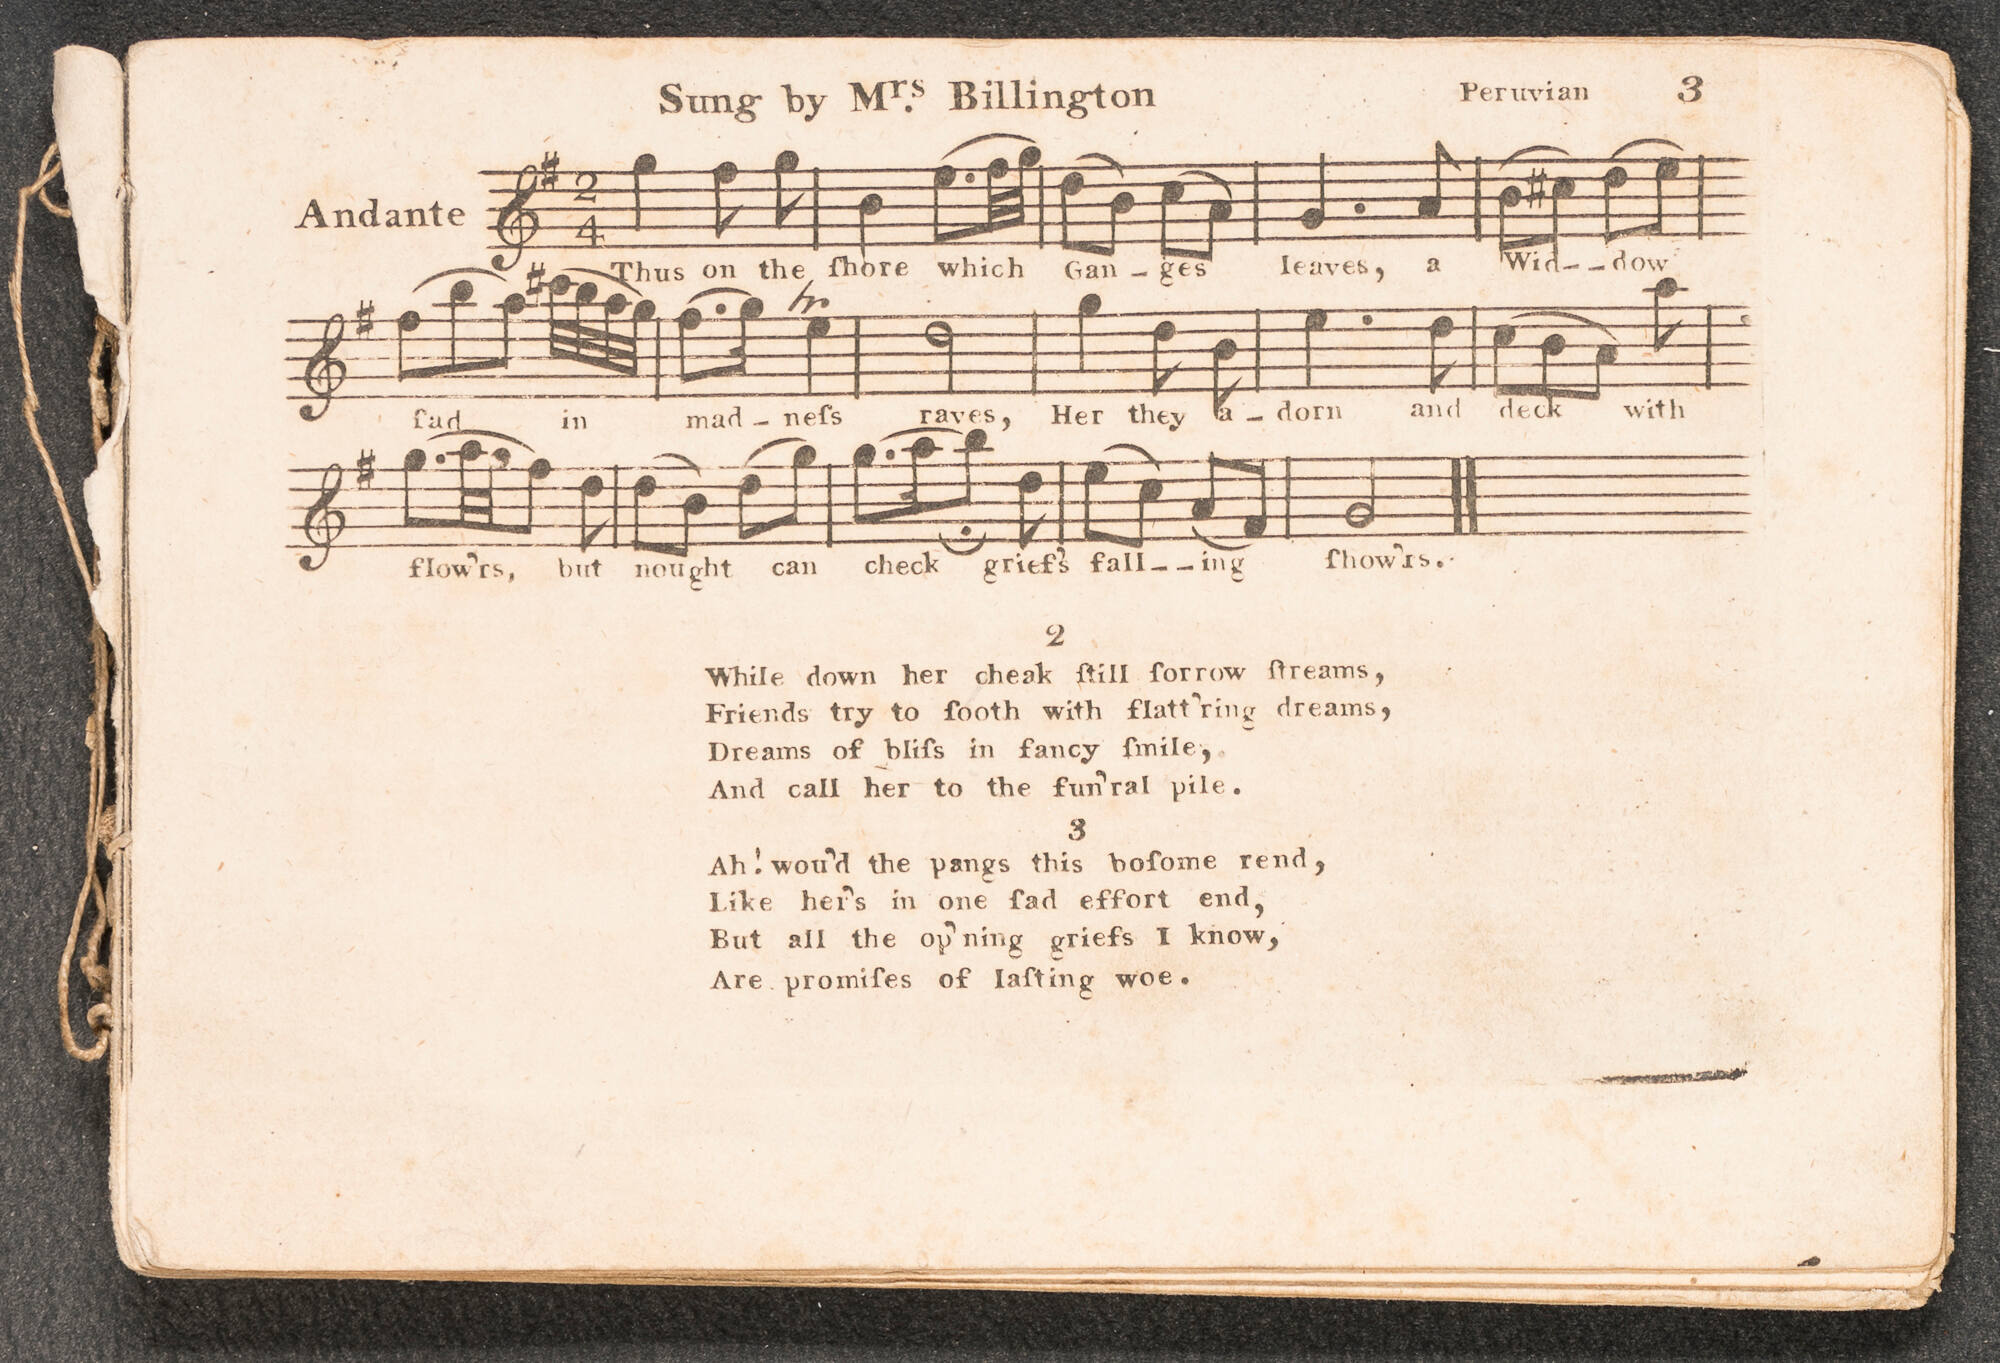 Sung by Mrs. Billington
Peruvian 3
Andante
2
4
Thus on the ſhore which Gan - ges leaves, a Wid - - dow
tr
ſad in mad - neſs raves, Her they a - dorn and deck with
flow'rs, but nought can check grief's fall - - ing ſhow'rs.
2
While down her cheak ſtill ſorrow ſtreams,
Friends try to ſooth with flatt'ring dreams,
Dreams of bliſs in fancy ſmile,
And call her to the fun'ral pile.
3
Ah! wou'd the pangs this boſome rend,
Like her's in one ſad effort end,
But all the op'ning griefs I know,
Are promiſes of laſting woe.